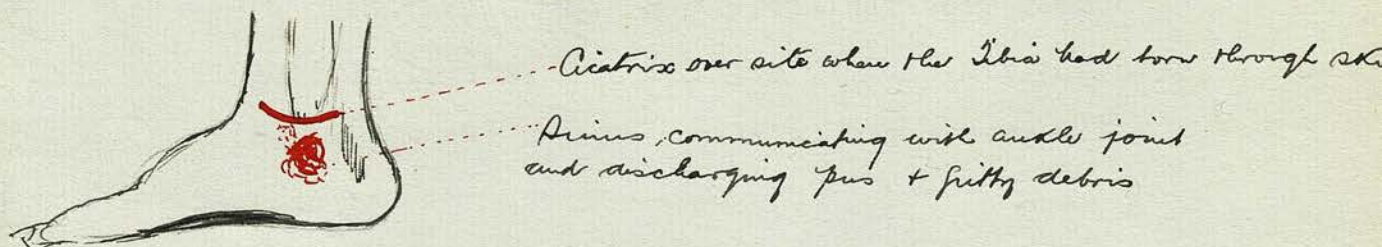 Cicatrix over site where the Tibia had torn through
Sinus, communicating with ankle joint
and discharging pus + gritty debris